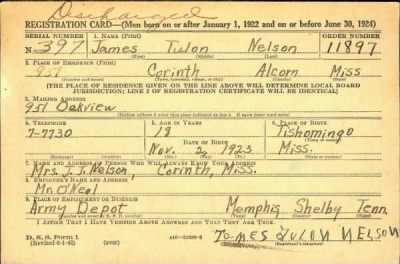 Discharged
REGISTRATION CARD—(Men born on or after January 1, 1922 and on or before June 30, 1924)
SERIAL NUMBER 1. NAME (Print) ORDER NUMBER
N 397 James Tulon Nelson 11897
(First) (Middle) (Last)
2. PLACE OF RESIDENCE (Print)
951 Corinth Alcorn Miss
(Number and street) (Town, township, village, or city) (County) (State)
[THE PLACE OF RESIDENCE GIVEN ON THE LINE ABOVE WILL DETERMINE LOCAL BOARD
JURISDICTION; LINE 2 OF REGISTRATION CERTIFICATE WILL BE IDENTICAL]
3. MAILING ADDRESS
951 Oakview
[Mailing address if other than place indicated on line 2. If same insert word same]
4. TELEPHONE 5. AGE IN YEARS 6. PLACE OF BIRTH
7-7730 18 Tishomingo
DATE OF BIRTH
Nov. 2, 1923 Miss.
7. NAME AND ADDRESS OF PERSON WHO WILL ALWAYS KNOW YOUR ADDRESS
Mrs. J. T. Nelson, Corinth, Miss.
8. EMPLOYER'S NAME AND ADDRESS
Mr. O'Neal
9. PLACE OF EMPLOYMENT OR BUSINESS
Army Depot Memphis Shelby Tenn.
I AFFIRM THAT I HAVE VERIFIED ABOVE ANSWERS AND THAT THEY ARE TRUE.
D. S. S. Form 1 JAMES TULON NELSON
(Revised 6-1-42) (over) (Registrant's signature)